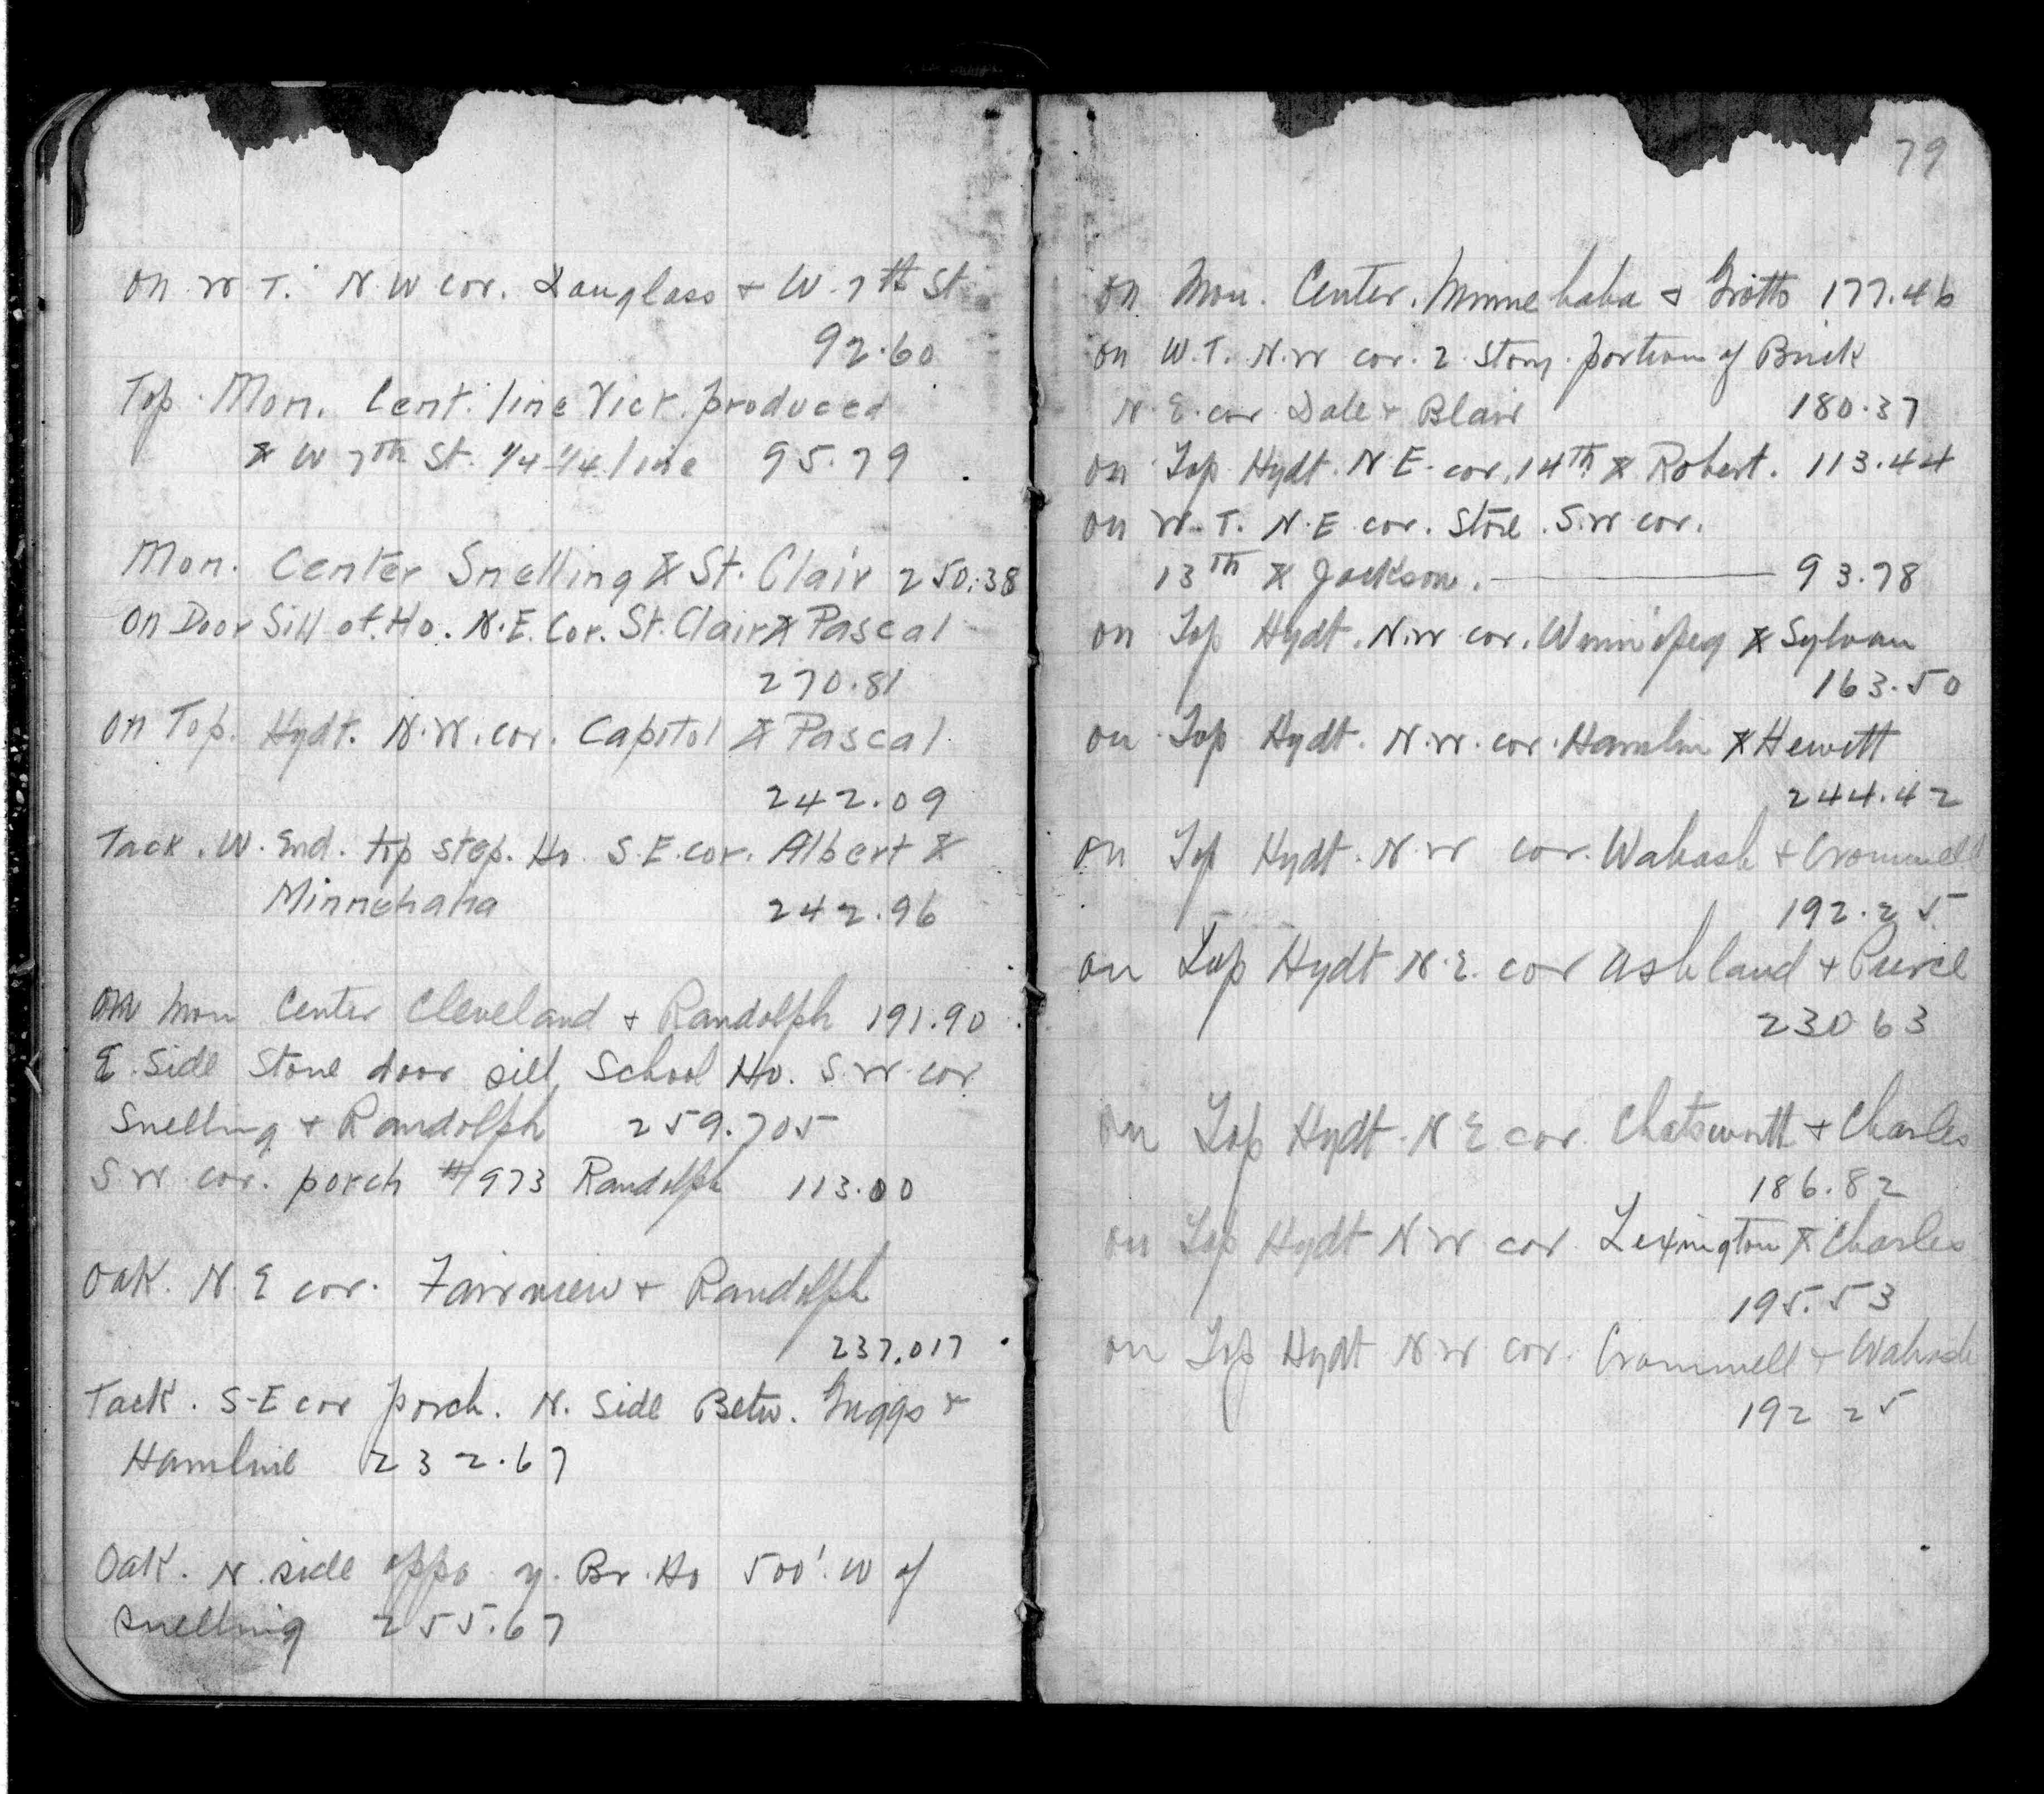 On W.T. N.W cor. Douglass + W. 7th St.
92.60
Top. Mon. Cent. line Vict. produced
& W 7th St. 1/4-1/4 line 95.79
Mon. Center Snelling & St. Clair 250.38
On Door Sill of Ho. N.E. Cor. St. Clair & Pascal
270.81
On Top. Hydt. N.W. cor. Capitol & Pascal
242.09
Tack. W. End. top step. Ho. S.E. cor. Albert &
Minnehaha 242.96
On Mon Center Cleveland + Randolph 191.90
E. Side Stone door sill, School Ho. S.W. cor
Snelling + Randolph 259.705
S W cor. porch #973 Randolph 113.00
Oak. N.E cor. Fairview + Randolph
237.017
Tack. S-E cor porch. N. Side Betw. Griggs +
Hamline 232.67
Oak. N. side oppo. y. Br. Ho 500'. W of
Snelling 255.67
79
On Mon. Center. Minnehaha + Grotto 177.46
On W.T. N.W cor. 2 Story portion of Brick
N.E. cor. Dale + Blair 180.37
On Top Hydt. N.E. cor. 14th & Robert. 113.44
On W.T. N.E. cor. Store. S.W cor.
13th & Jackson. 93.78
On Top Hydt. N.W. cor. Winnipeg & Sylvan
163.50
On Top Hydt. N.W. cor. Hamlin & Hewitt
244.42
On Top Hydt. N.W cor. Wabash + Cromwell
192.25
On Top Hydt N.E. cor Ashland + Pierce
230 63
On Top Hydt. N E cor. Chatsworth + Charles
186.82
On Top Hydt N W cor. Lexington & Charles
195.53
On Top Hydt N W cor. Cromwell + Wabash
192 25